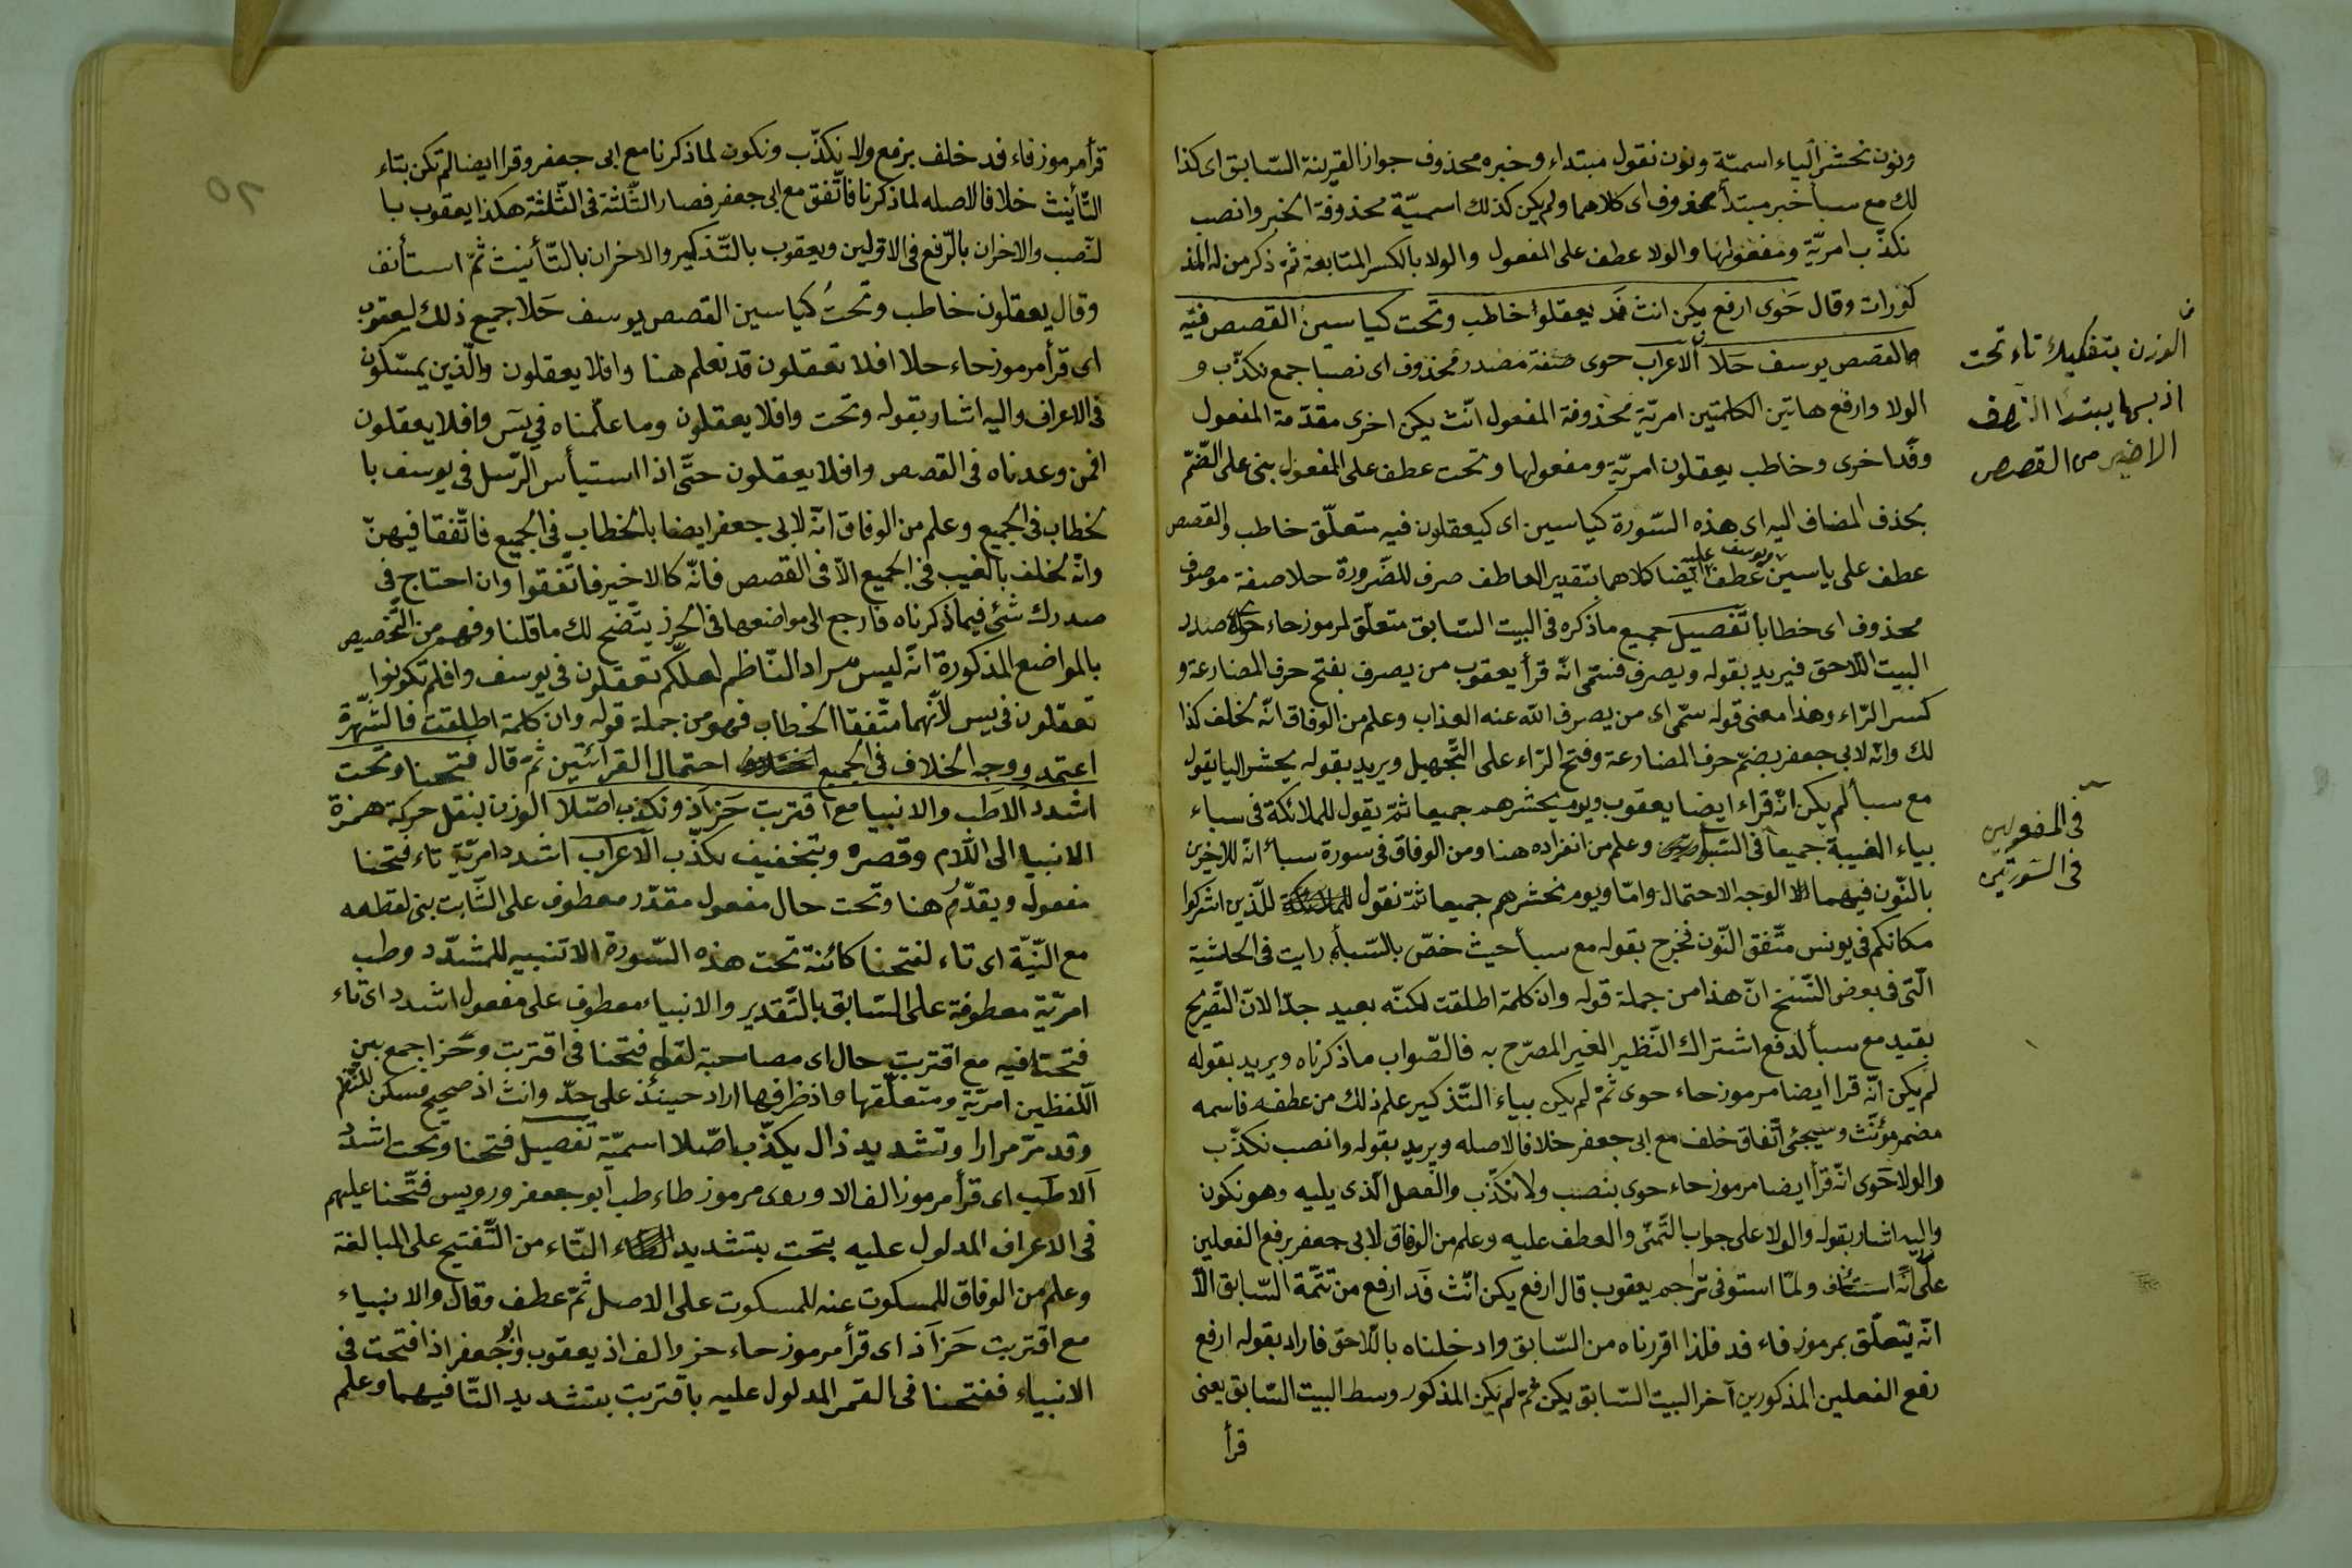 ونون نحشر الياء اسميّة ونون نقول مبتداء وخبره محذوف جوازا لقرينة السّابق اى كذا
لك مع سبأ خبر مبتدأ محذوف اى كلاهما ولم يكن كذلك اسميّة محذوفة الخبر وانصب
نكذّب امريّة ومفعولها والولا عطف على المفعول والولا بالكسر المتابعة ثمّ ذكر من له المذ
كورات وقال حَوى ارفع يكن انث فَد يعقلوا خاطب وتحت كياسين القصص فيّه
والقصص يوسف حَلا الاعراب حوى صفة مصدر محذوف اى نصبا جمع نكذّب و
الولا وارفع هاتين الكلمتين امريّة محذوفة المفعول انّث يكن اخرى مقدّمة المفعول
وفدا خرى وخاطب يعقلون امريّة ومفعولها وتحت عطف على المفعول بنى على الضّمّ
بحذف المضاف اليه اى هذه السّورة كياسين اى كيعقلون فيه متعلّق خاطب والقصص
عطف على ياسين ويوسف عطف عليه ايضا كلاهما بتقدير العاطف صرف للضّرورة حلا صفة موصوف
محذوف اى خطابا تفصيل جميع ماذكره فى البيت السّابق متعلّق لمرموز حاء حوله صدر
البيت اللّاحق فيريد بقوله ويصرف فسمّى انّه قرأ يعقوب من يصرف بفتح حرف المضارعة و
كسر الرّاء وهذا معنى قوله سمّى اى من يصرف الله عنه العذاب وعلم من الوفاق انّه لخلف كذا
لك وانّه لابى جعفر بضمّ حرف المضارعة وفتح الراء على التّجهيل ويريد بقوله يحشر اليا يقول
مع سبأ لم يكن انّه قراء ايضا يعقوب ويوم يحشرهم جميعا ثمّ يقول للملائكة فى سباء
بياء الغيبة جميعا فى السّبأ وعلم من انفراده هنا ومن الوفاق فى سورة سبأ انّه للاخرين
بالنّون فيهما الا لوجه الاحتمال وامّا ويوم نحشرهم جميعا ثمّ نقول للّذين اشركوا
مكانكم فى يونس متّفق النّون فخرج بقوله مع سبأ حيث خصّ بالسّبأ رايت فى الحاشية
الّتى فى بعض النّسخ انّ هذا من جملة قوله وان كلمة اطلقت لكنّه بعيد جدّا لانّ التّصريح
بقيد مع سبأ لدفع اشتراك النّظير الغير المصرّح به فالصّواب ما ذكرناه ويريد بقوله
لم يكن انّه قرا ايضا مرموز حاء حوى ثمّ لم يكن بياء التّذكير علم ذلك من عطفه فاسمه
مضمر مؤنّث وسيجئ اتّفاق خلف مع ابى جعفر خلافا لاصله ويريد بقوله وانصب نكذّب
والولا حَوى انّه قرأ ايضا مرموز حاء حوى بنصب ولا نكذّب والفعل الّذى يليه وهو نكون
واليه اشار بقوله والولا على جواب التّمنّى والعطف عليه وعلم من الوفاق لابى جعفر برفع الفعلين
على انّه استئناف ولمّا استوفى تراجم يعقوب قال ارفع يكن انّث فَد ارفع من تتمّة السّابق الّا
انّه يتعلّق بمرموز فاء فد فلذا افرزناه من السّابق وادخلناه باللّاحق فاراد بقوله ارفع
رفع الفعلين المذكورين آخر البيت السّابق يكن ثمّ لم يكن المذكور وسط البيت السّابق يعنى
قرأ
الوزن بتفكيك تاء تحت
اذ بها يبتدأ النّصف
الاخير من القصص
فى المفعولين
فى السّورتين
قرأ مرموز فاء فد خلف برفع ولا نكذّب ونكون لما ذكرنا مع ابى جعفر وقرا ايضا لم تكن بتاء
التّأنيث خلافا لاصله لما ذكرنا فاتّفق مع ابى جعفر فصار الثّلثة فى الثّلثة هكذا يعقوب با
لنّصب والاخران بالرّفع فى الاوّلين ويعقوب بالتّذكير والاخران بالتّأنيث ثمّ استأنف
وقال يعقلون خاطب وتحتُ كياسين القصص يوسف حَلا جميع ذلك ليعقوب
اى قرأ مرموز حاء حلا افلا تعقلون قد نعلم هنا وافلا يعقلون والّذين يمسّكون
فى الاعراف واليه اشار بقوله وتحت وافلا يعقلون وما علّمناه فى يس وافلا يعقلون
افمن وعدناه فى القصص وافلا يعقلون حتّى اذا استيأس الرّسل فى يوسف با
لخطاب فى الجميع وعلم من الوفاق انّه لابى جعفر ايضا بالخطاب فى الجميع فاتّفقا فيهنّ
وانّه لخلف بالغيب فى الجميع الّا فى القصص فانّه كالاخير فاتّفقوا وان احتاج فى
صدرك شئ فيما ذكرناه فارجع الى مواضعها فى الحرز يتّضح لك ما قلنا وفهم من التّخصيص
بالمواضع المذكورة انّه ليس مراد النّاظم لعلّكم تعقلون فى يوسف وافلم تكونوا
تعقلون فى يس لأنّهما متّفقا الخطاب فهو من جملة قوله وان كلمة اطلقت فالشّهرة
اعتمد ووجه الخلاف فى الجميع احتمال القرائتين ثمّ قال فتحنا وتحت
اشدد الاطَب والانبيا مع اقتربت حَز اَذ ونكذب اصّلا الوزن بنقل حركة همزة
الانبيا الى اللّام وقصره وبتخفيف نكذّب الاعراب اشدد امريّة تاء فتحنا
مفعول ويقدّم هنا وتحت حال مفعول مقدّر معطوف على الثّابت بنى لقطعه
مع النّيّة اى تاء لفتحنا كائنة تحت هذه السّورة الا تنبيه للمشدّد وطب
امريّة معطوفة على السّابق بالتّقدير والانبياء معطوف على مفعول اشدد اى تاء
فتحتافيه مع اقتربت حال اى مصاحبة لقوله فتحنا فى اقتربت وحَز اجمع بين
اللّفظين امريّة ومتعلّقها واذ ظرفها اراد حينئذ على حدّ وانث اذ صحيح فسكن للنّظم
وقد مرّ مرارا وتشديد ذال يكذّب اصّلا اسميّة تفصيل فتحنا وتحت اشدد
اَلاطَب اى قرأ مرموز الف الا وروى مرموز طاء طب ابو جعفر ورويس فتّحنا عليهم
فى الاعراف المدلول عليه بتحت بتشديد التّاء من التّفتيح على المبالغة
وعلم من الوفاق للمسكوت عنه للمسكوت على الاصل ثمّ عطف وقال والانبياء
مع اقتربت حَز اَذ اى قرأ مرموز حاء حز والف اذ يعقوب وابو جعفر اذا فتحت فى
الانبياء ففتحنا فى القمر المدلول عليه باقتربت بتشديد التّا فيهما وعلم